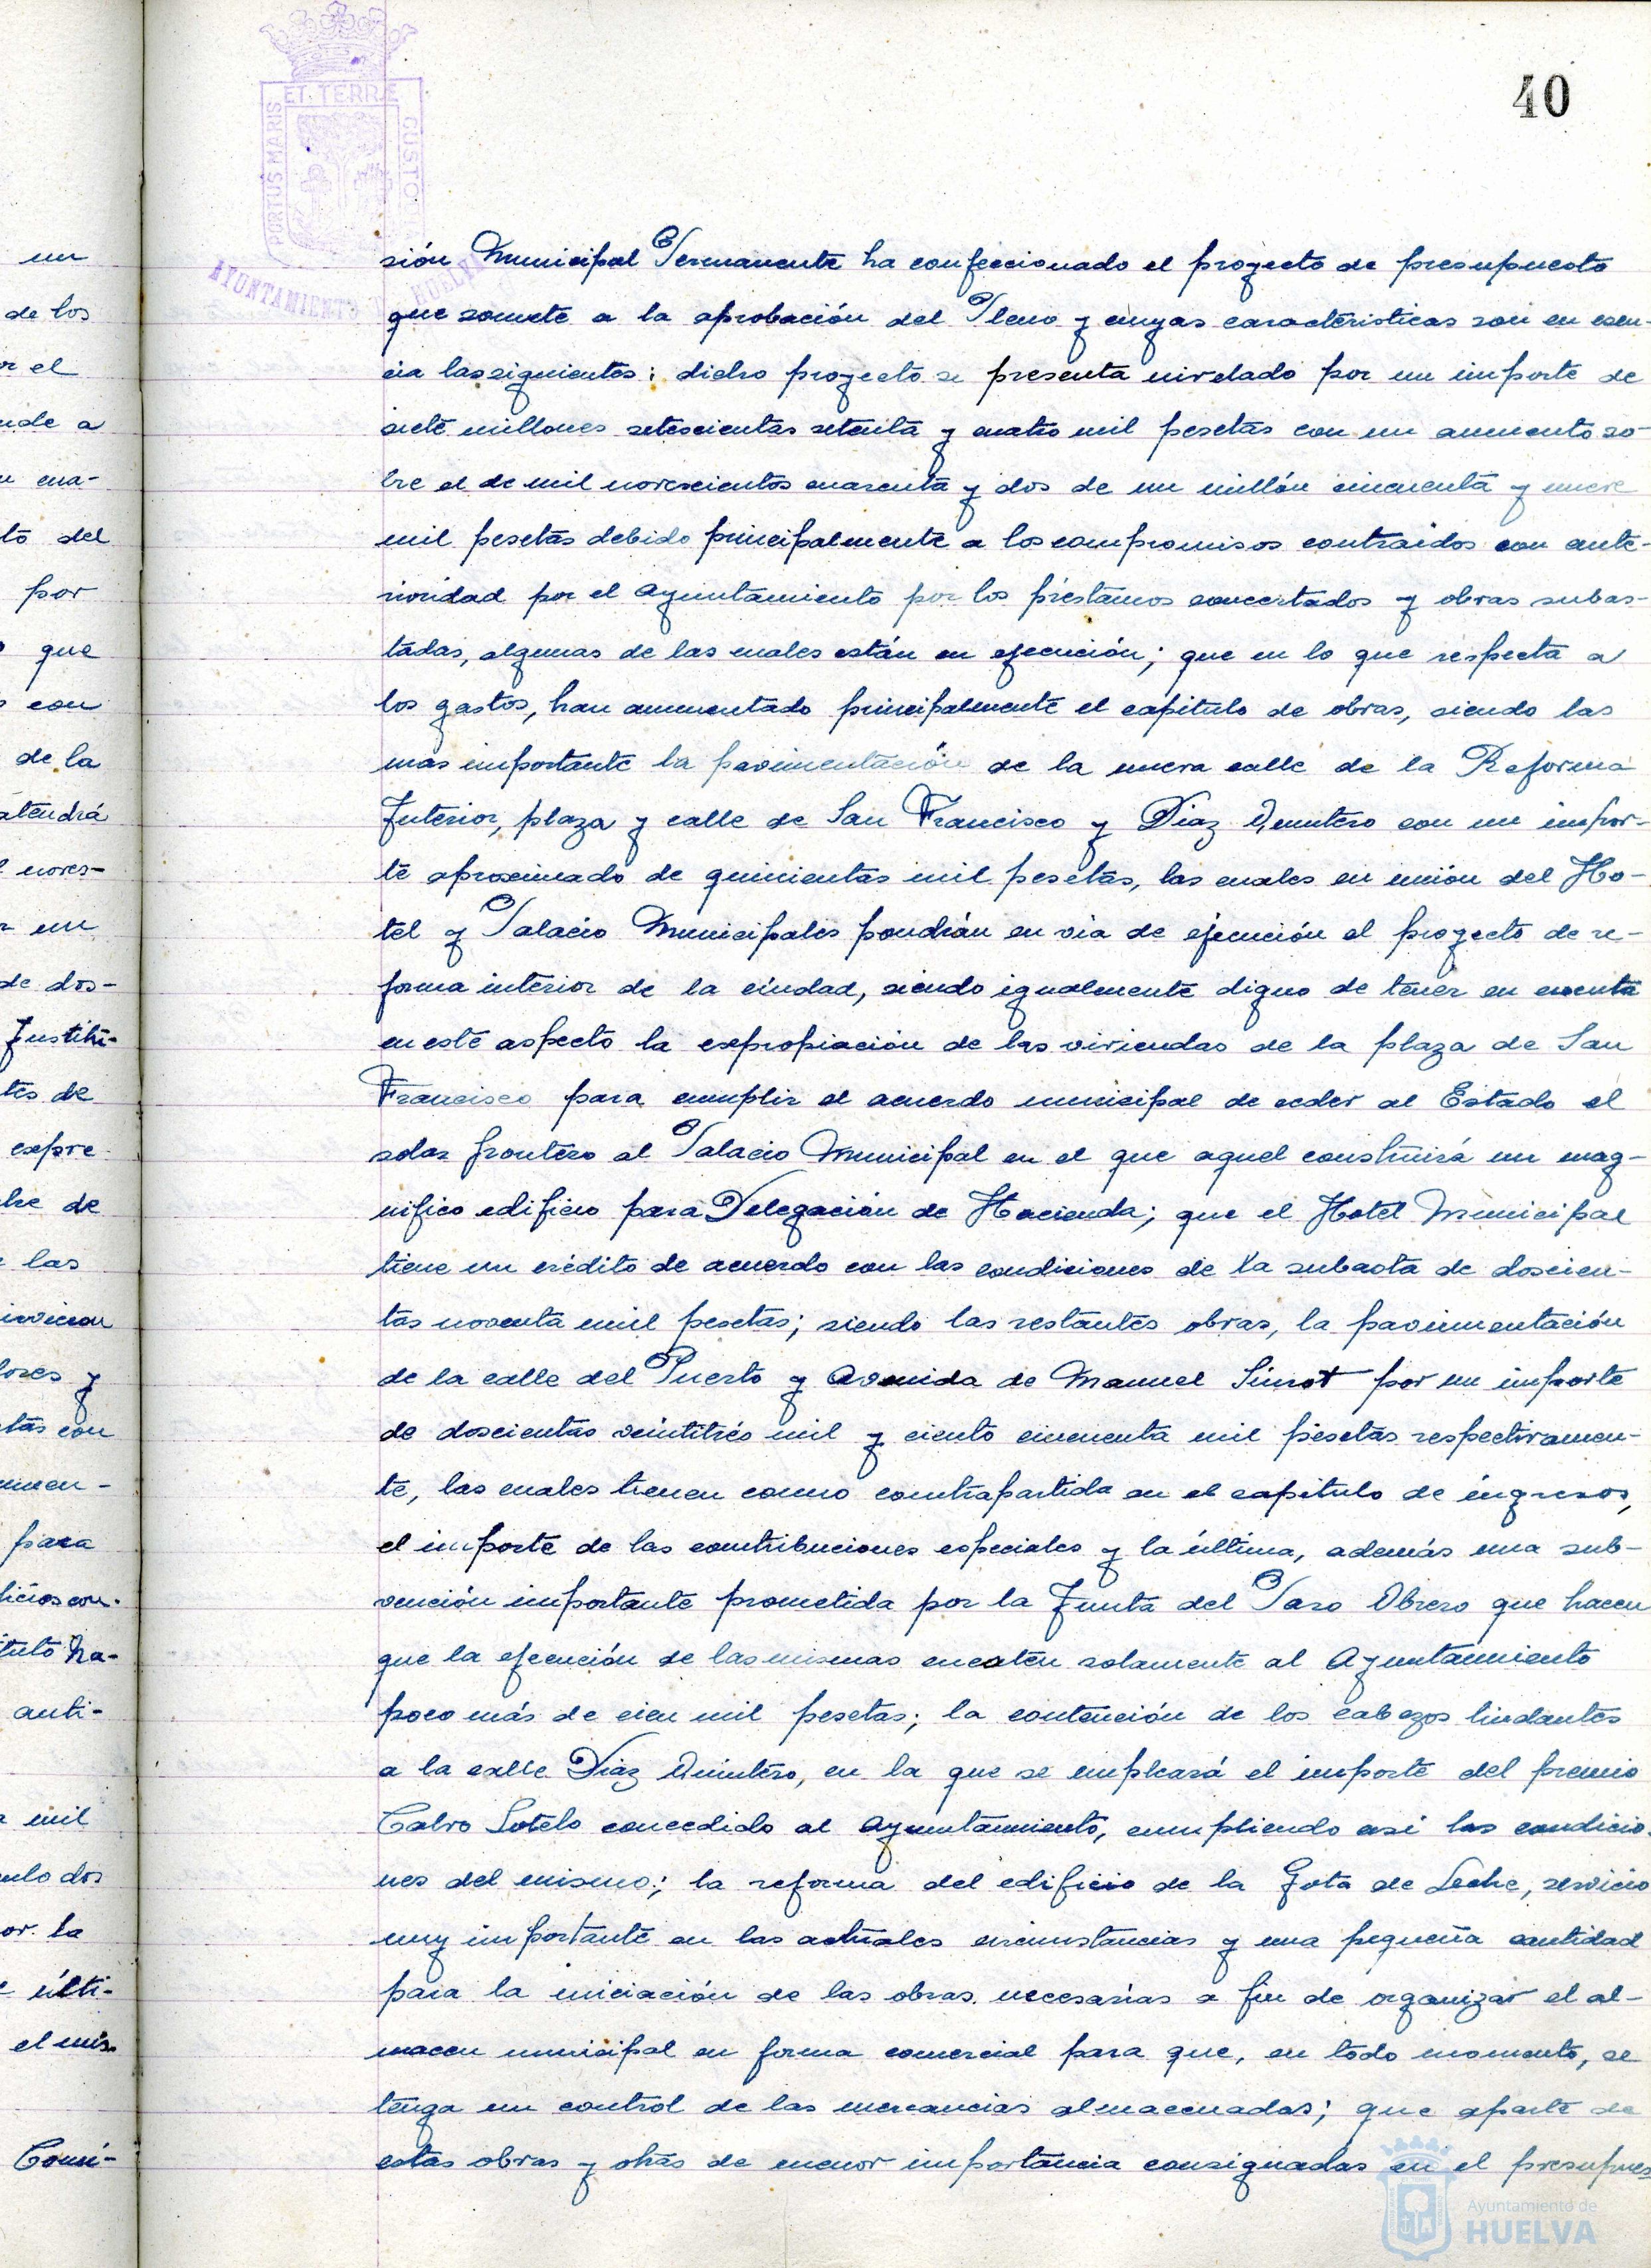 40
PORTUS MARIS
ET TERRE
CUSTODIA
AYUNTAMIENTO DE HUELVA
un
de los
or el
nde a
n cua-
to del
por
que
con
de la
atendrá
noves-
un
de dos-
Justiti-
tes de
expre-
de
las
lores y
tas con
men-
para
anti-
mil
or la
últi-
el mis-
Comi-
sión Municipal Permanente ha confeccionado el proyecto de presupuesto
que somete a la aprobación del Pleno y cuyas caracteristicas son en esen-
cia las siguientes: dicho proyecto se presenta nivelado por un importe de
siete millones setescientas setenta y cuatro mil pesetas con un aumento so-
bre el de mil novescientos cuarenta y dos de un millón cincuenta y nueve
mil pesetas debido principalmente a los compromisos contraidos con ante-
rioridad por el Ayuntamiento por los préstamos concertados y obras subas-
tadas, algunas de las cuales están en ejecución; que en lo que respecta a
los gastos, han aumentado principalmente el capitulo de obras, siendo las
mas importante la pavimentación de la nueva calle de la Reforma
Interior, plaza y calle de San Francisco y Diaz Quintero con un impor-
te aproximado de quinientas mil pesetas, las cuales en unión del Ho-
tel y Palacio Municipales pondrán en via de ejecución el proyecto de re-
forma interior de la ciudad, siendo igualmente digno de tener en cuenta
en este aspecto la expropiación de las viviendas de la plaza de San
Francisco para cumplir el acuerdo municipal de ceder al Estado el
solar frontero al Palacio Municipal en el que aquel construirá un mag-
nifico edificio para Delegación de Hacienda; que el Hotel Municipal
tiene un crédito de acuerdo con las condiciones de la subasta de doscien-
tas noventa mil pesetas; siendo las restantes obras, la pavimentación
de la calle del Puerto y Avenida de Manuel Siurot por un importe
de doscientas veintitrés mil y ciento cincuenta mil pesetas respectivamen-
te, las cuales tienen como contrapartida en el capitulo de ingresos,
el importe de las contribuciones especiales y la última, además una sub-
vención importante prometida por la Junta del Paro Obrero que hacen
que la ejecución de las mismas cuesten solamente al Ayuntamiento
poco más de cien mil pesetas; la contención de los cabezos lindantes
a la calle Diaz Quintero, en la que se empleará el importe del premio
Calvo Sotelo concedido al Ayuntamiento, cumpliendo asi las condicio-
nes del mismo; la reforma del edificio de la Gota de Leche, servicio
muy importante en las actuales circunstancias y una pequeña cantidad
para la iniciación de las obras necesarias a fin de organizar el al-
macen municipal en forma comercial para que, en todo momento, se
tenga un control de las mercancias almacenadas; que aparte de
estas obras y otras de menor importancia consignadas en el presupues
Ayuntamiento de
HUELVA